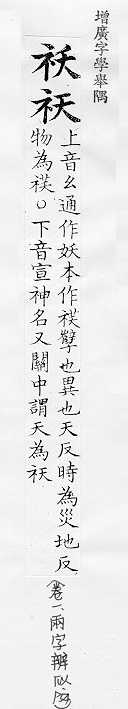 增廣字學舉隅
祅 祆
上音幺通作妖本作䄏孽也異也天反時為災地反
物為䄏〇下音宣神名又關中謂天為祆
(卷一、兩字辨似